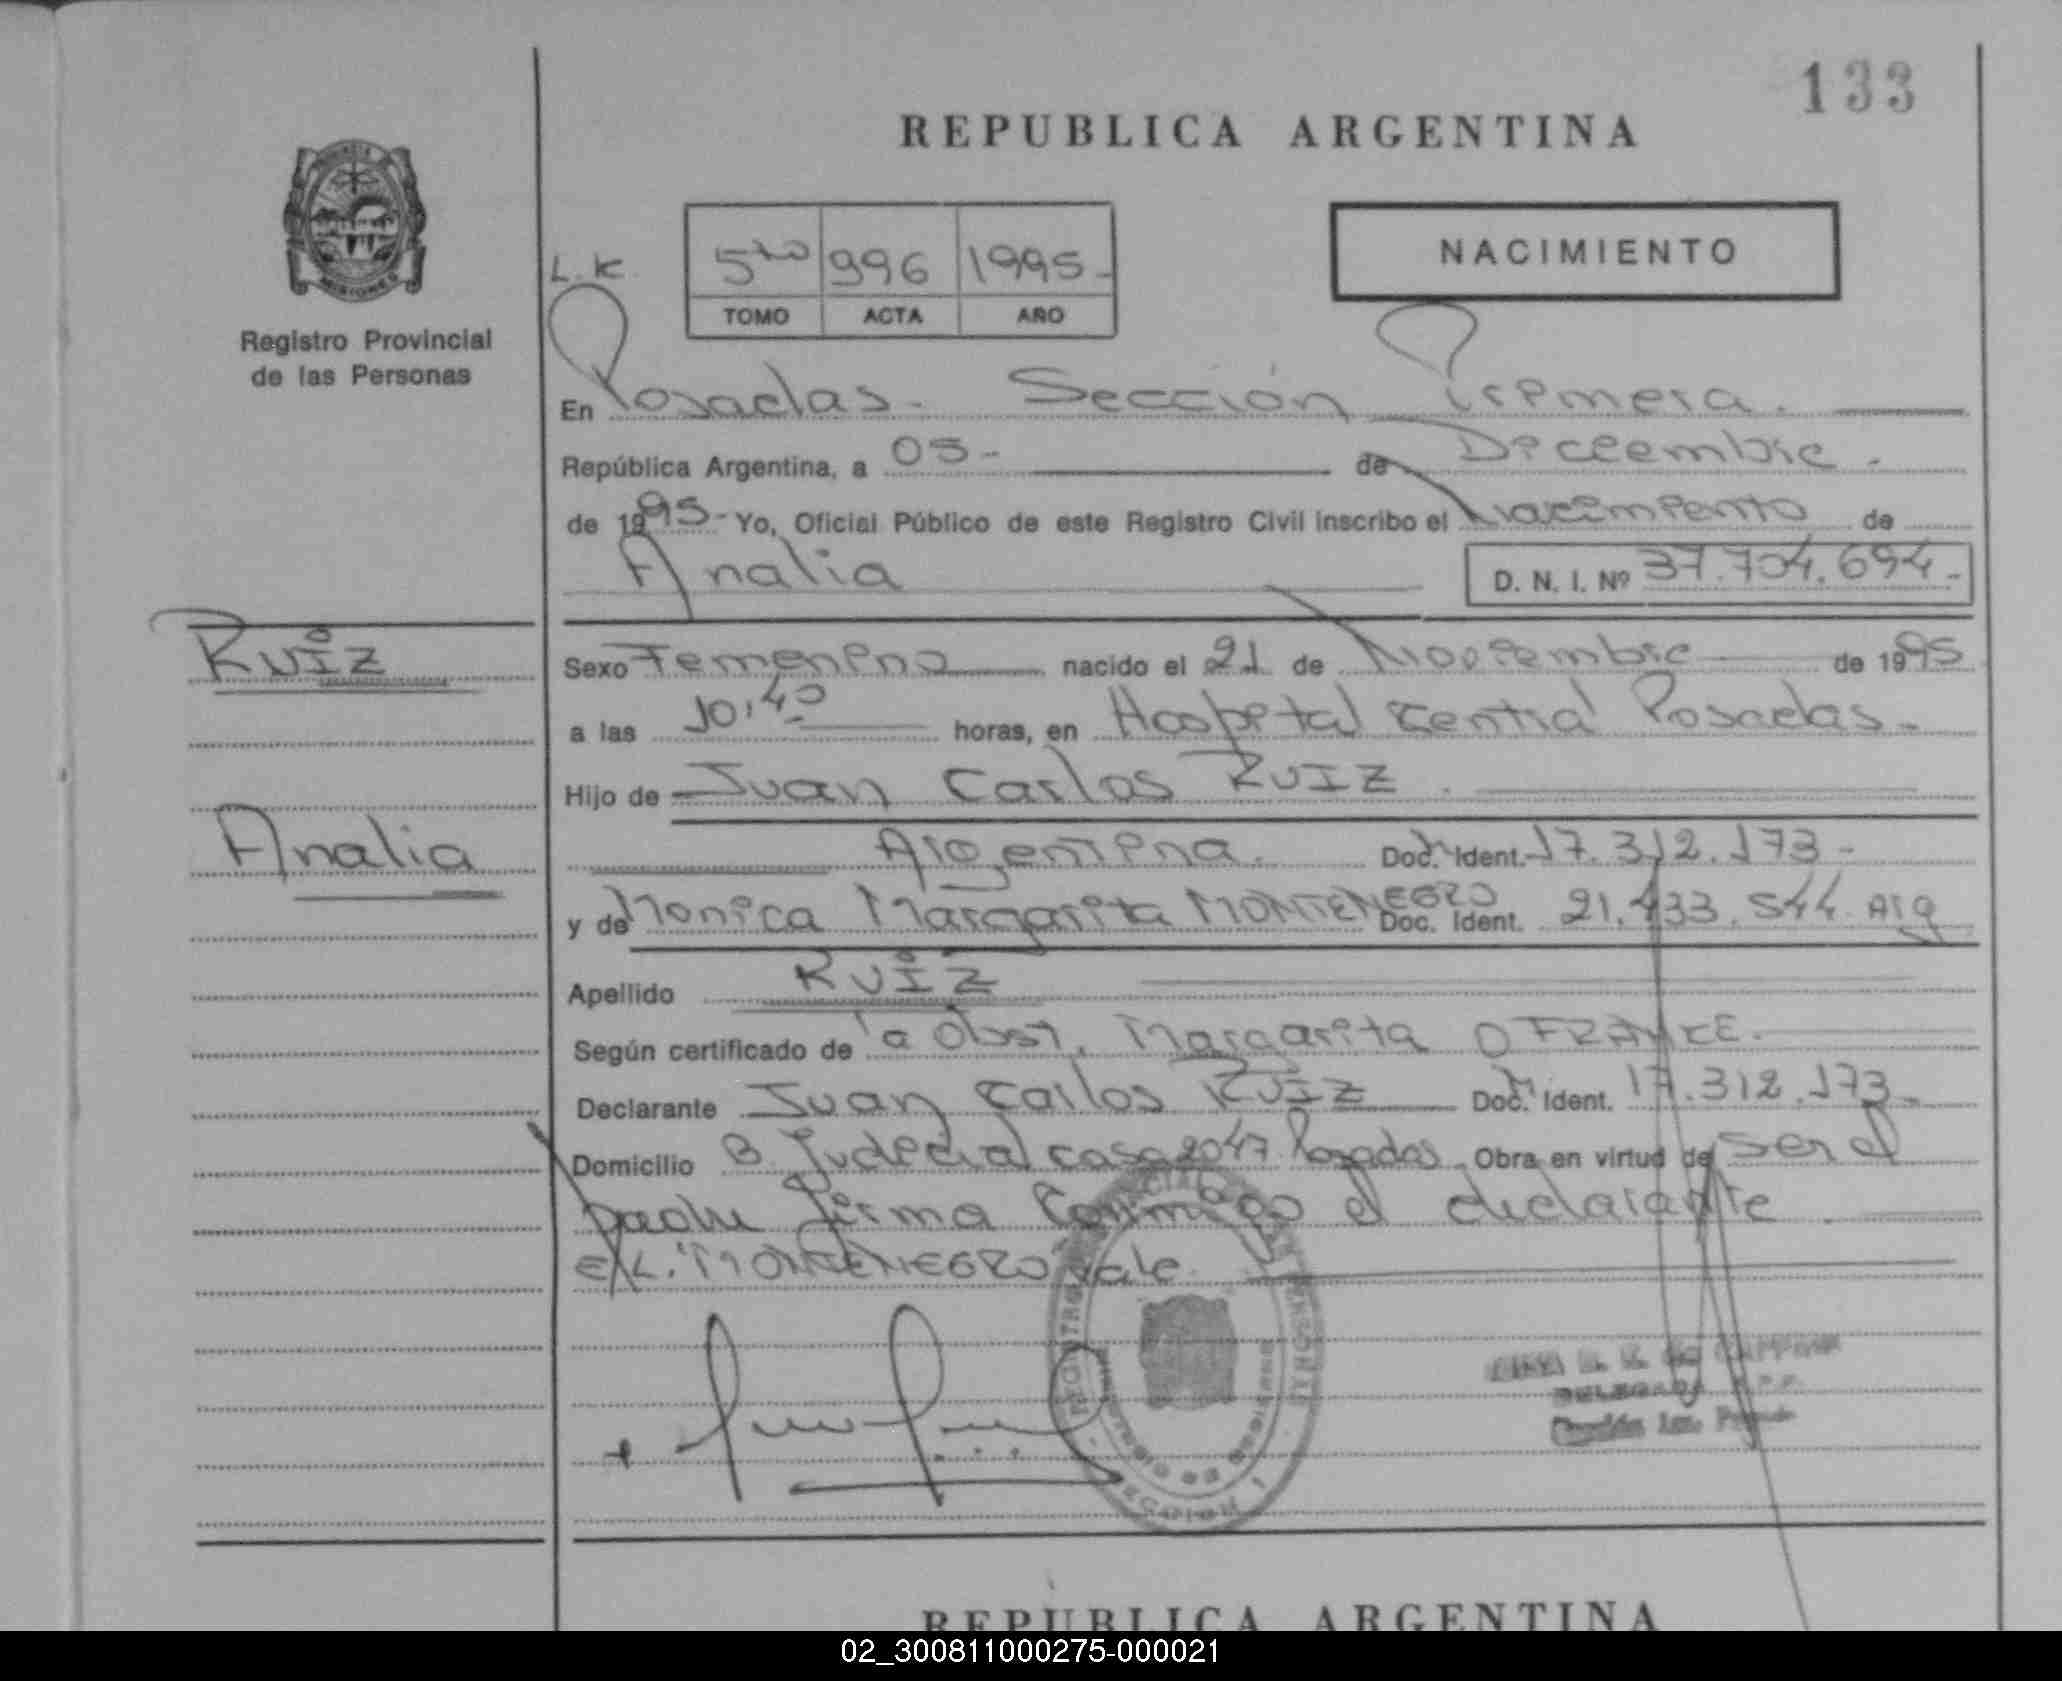 133
REPUBLICA ARGENTINA
MISIONES
Registro Provincial
de las Personas
L.K.
5to 996 1995-
TOMO ACTA AÑO
NACIMIENTO
En Posadas. Sección Primera.
República Argentina, a 05- de Diciembre.
de 1995- Yo, Oficial Público de este Registro Civil inscribo el Nacimiento de
Analia D. N. I. Nº 37.704.694-
Ruiz
Sexo Femenino nacido el 21 de Noviembre de 1995
a las 10:40 horas, en Hospital Central Posadas.
Hijo de Juan Carlos RUIZ.
Analia
Argentina. Doc. Ident. 17.312.173-
y de Monica Margarita MONTENEGRO Doc. Ident. 21.433.544. Arg
Apellido RUIZ
Según certificado de la Obst. Margarita O FRANKE.
Declarante Juan Carlos RUIZ Doc. Ident. 17.312.173-
Domicilio B. Judicial casa 2047 Posadas. Obra en virtud de ser el
padre firma conmigo el declarante
E/L. "MONTENEGRO vale.
REGISTRO PROVINCIAL DE LAS PERSONAS
SECCION 1
DELEGADA R.P.P.
Sección 1ra. Posadas
REPUBLICA ARGENTINA
02_300811000275-000021